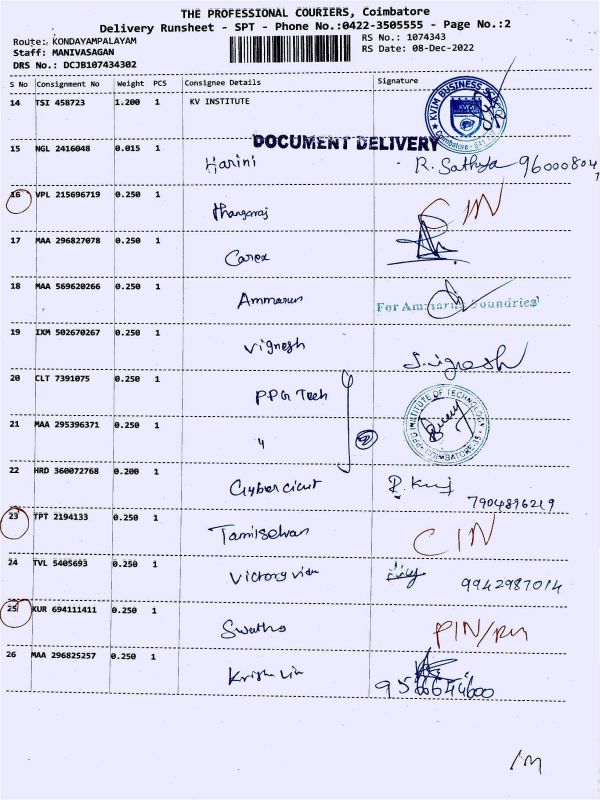 THE PROFESSIONAL COURIERS, Coimbatore
Delivery Runsheet - SPT - Phone No.:0422-3505555 - Page No.:2
Route: KONDAYAMPALAYAM
Staff: MANIVASAGAN
DRS No.: DCJB107434302
RS No.: 1074343
RS Date: 08-Dec-2022
S No Consignment No Weight PCS Consignee Details Signature
14 TSI 458723 1.200 1 KV INSTITUTE
KVIM BUSINESS
Coimbatore - 641
DOCUMENT DELIVERY
15 NGL 2416048 0.015 1 Harini R. Sathya 96000804
16 VPL 215696719 0.250 1 Thangaraj CIN
17 MAA 296827078 0.250 1 Carex
18 MAA 569620266 0.250 1 Ammarun For Ammarun Foundries
19 IXM 502670267 0.250 1 Vignesh S.vignesh
20 CLT 7391075 0.250 1 PPG Tech
PPG INSTITUTE OF TECHNOLOGY
COIMBATORE-35
21 MAA 295396371 0.250 1 " 2
22 HRD 360072768 0.200 1 Cybercicut
7904896219
23 TPT 2194133 0.250 1 Tamilselvan CIN
24 TVL 5405693 0.250 1 Victory view 9942987014
25 KUR 694111411 0.250 1 Swatha PIN/RM
26 MAA 296825257 0.250 1 Krisha Lin
9566644600